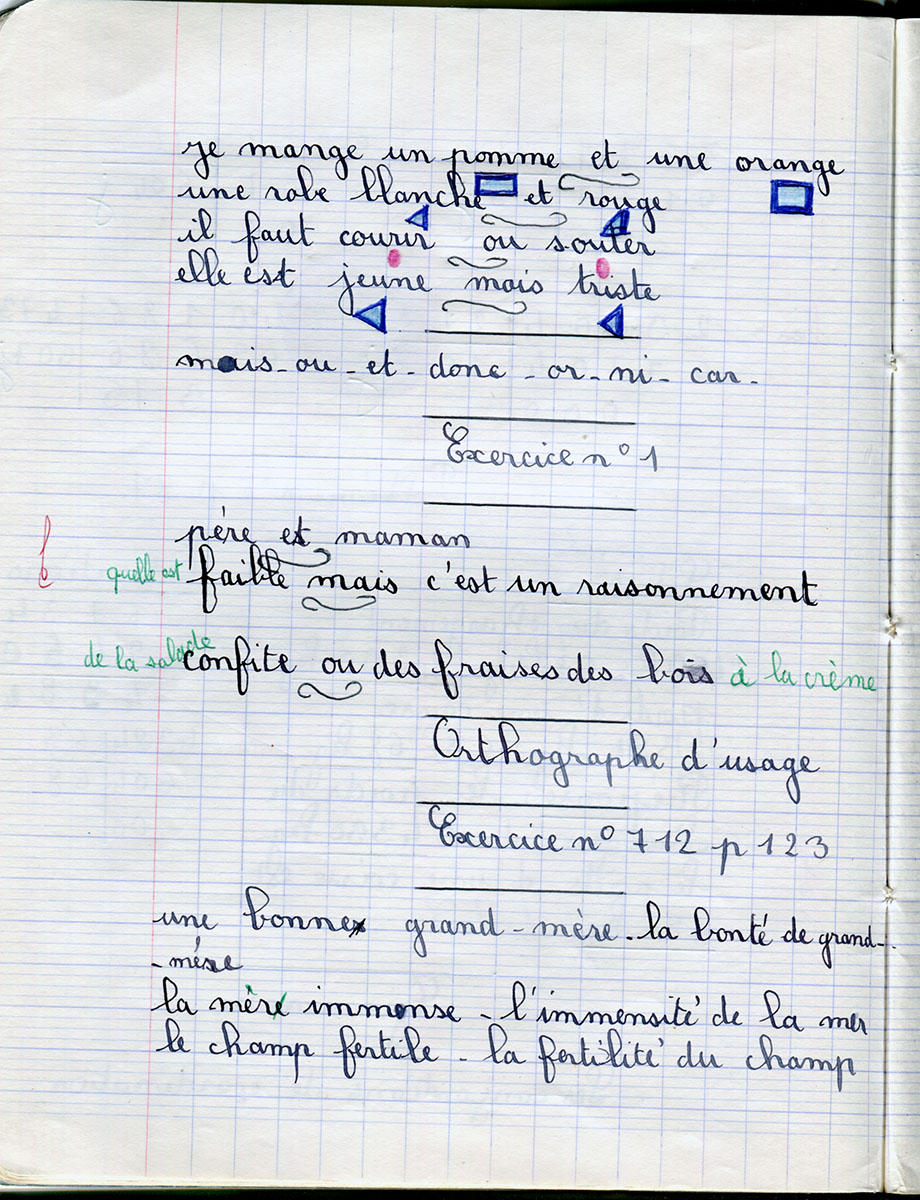 je mange un pomme et une orange
une robe blanche et rouge
il faut courir ou souter
elle est jeune mais triste
mais - ou - et - donc - or - ni - car -
Exercice n° 1
père et maman
quelle est faible mais c'est un raisonnement
de la salade confite ou des fraises des bois à la crème
Orthographe d'usage
Exercice n° 712 p 123
une bonne grand-mère - la bonté de grand-
-mére
la mère immonse - l'immensité de la mer
le champ fertile - la fertilité du champ